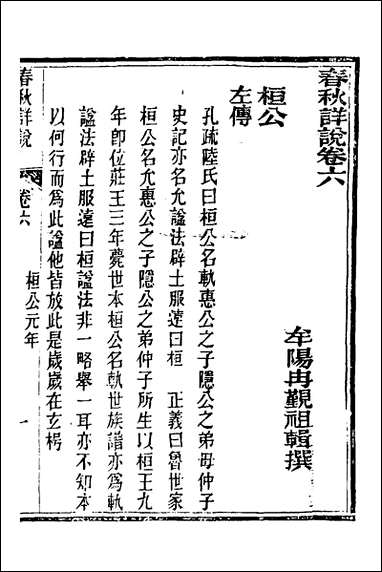 春秋詳說卷六
牟陽冉覲祖輯撰
桓公
左傳
孔疏陸氏曰桓公名軌惠公之子隱公之弟母仲子
史記亦名允諡法辟土服遠曰桓 正義曰魯世家
桓公名允惠公之子隱公之弟仲子所生以桓王九
年卽位莊王三年薨世本桓公名軌世族譜亦爲軌
諡法辟土服遠曰桓諡法非一略舉一耳亦不知本
以何行而爲此諡他皆放此是歲歲在玄枵
春秋詳說
卷六
桓公元年
一